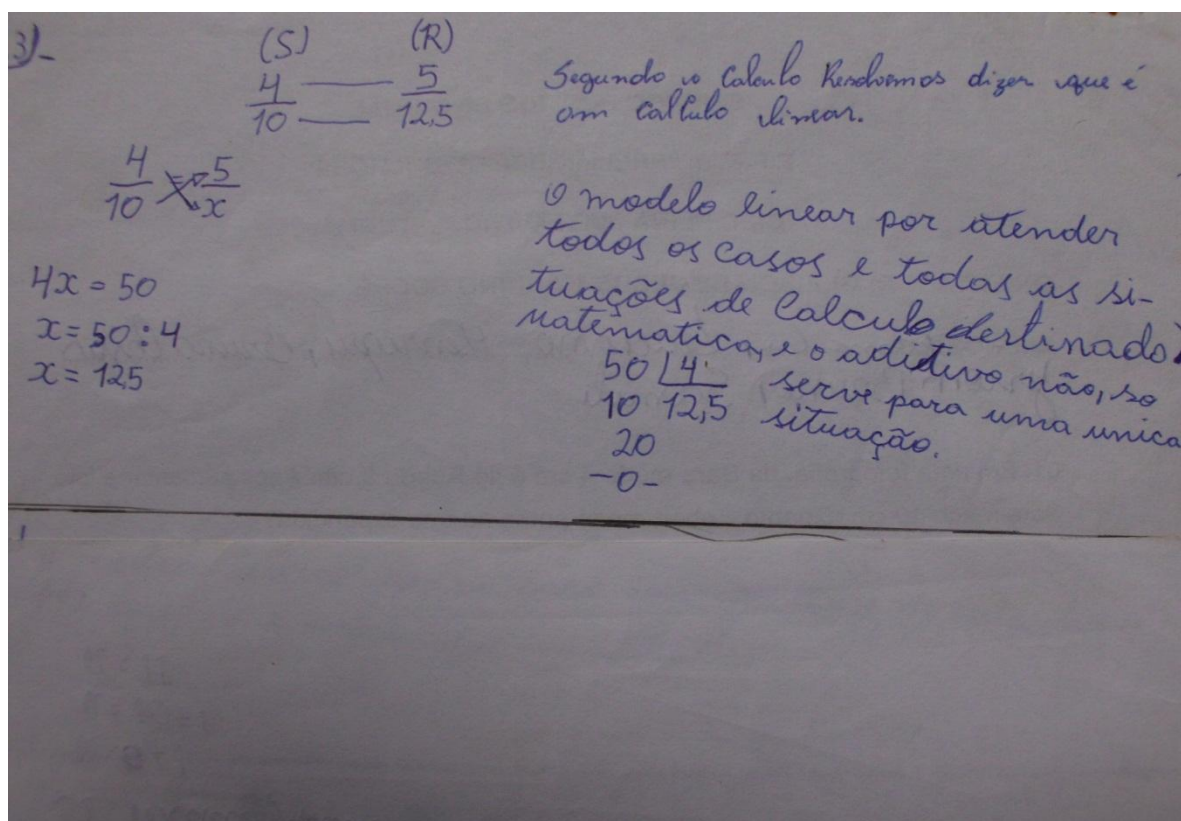 3)-
(S) (R)
4/10 —— 5/12,5
4/10 = 5/x
4x = 50
x = 50 : 4
x = 12,5
Segundo o Calculo Resolvemos dizer que é
um callculo linear.
O modelo linear por atender
todos os casos e todas as si-
tuações de Calculo destinado
matematica, e o aditivo não, so
serve para uma unica
situação.
50 | 4
10 12,5
20
-0-